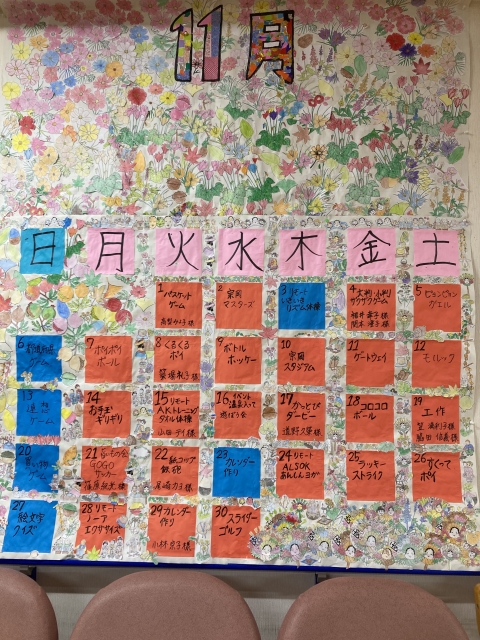 11月
日 月 火 水 木 金 土
1
バスケット
ゲーム
2
宗岡
マスターズ
3 リモート
いきいき
リズム体操
4 大判・小判
ザクザクゲーム
5
ピョンピョン
ガエル
6
都道府県
ゲーム
7
ポイポイ
ボール
8 くるくる
ポイ
9
ボトル
ホッケー
10
宗岡
スタジアム
11
ゲートウェイ
12
モルック
13
連想
ゲーム
14
お手玉
ギリギリ
15 リモート
AKトレーニング
タオル体操
16 イベント
温泉入って
遊ぼう会
17 かっとび
ダービー
18 コロコロ
ボール
19
工作
20
買い物
ゲーム
21
GOGO
サッカー
22 紙コップ
鉄砲
23
カレンダー
作り
24 リモート
ALSOK
あんしんヨガ
25
ラッキー
ストライク
26 すくって
ポイ
27
絵文字
クイズ
28 リモート
ノーア
エクササイズ
29 カレンダー
作り
小林 京子様
30
スライダー
ゴルフ